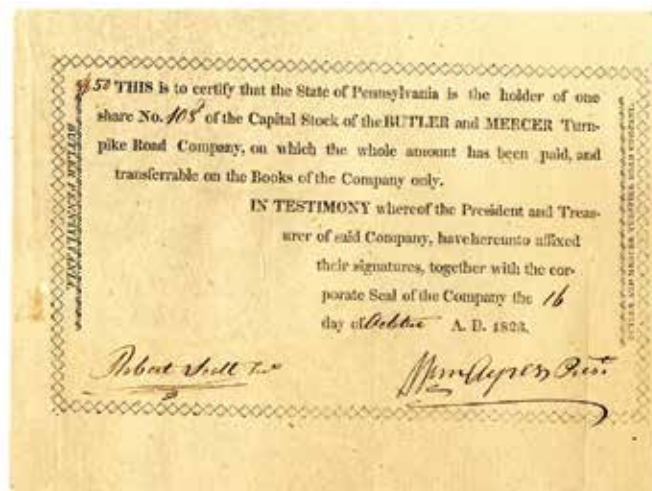 $50 THIS is to certify that the State of Pennsylvania is the holder of one
share No. 108 of the Capital Stock of the BUTLER and MERCER Turn-
pike Road Company, on which the whole amount has been paid, and
transferrable on the Books of the Company only.
IN TESTIMONY whereof the President and Treas-
urer of said Company, have hereunto affixed
their signatures, together with the cor-
porate Seal of the Company the 16
day of October A. D. 1823.
Robert Scott
Wm Ayres Prest
BUTLER PENNSYLVANIA.
BUTLER AND MERCER TURNPIKE ROAD COMPANY.